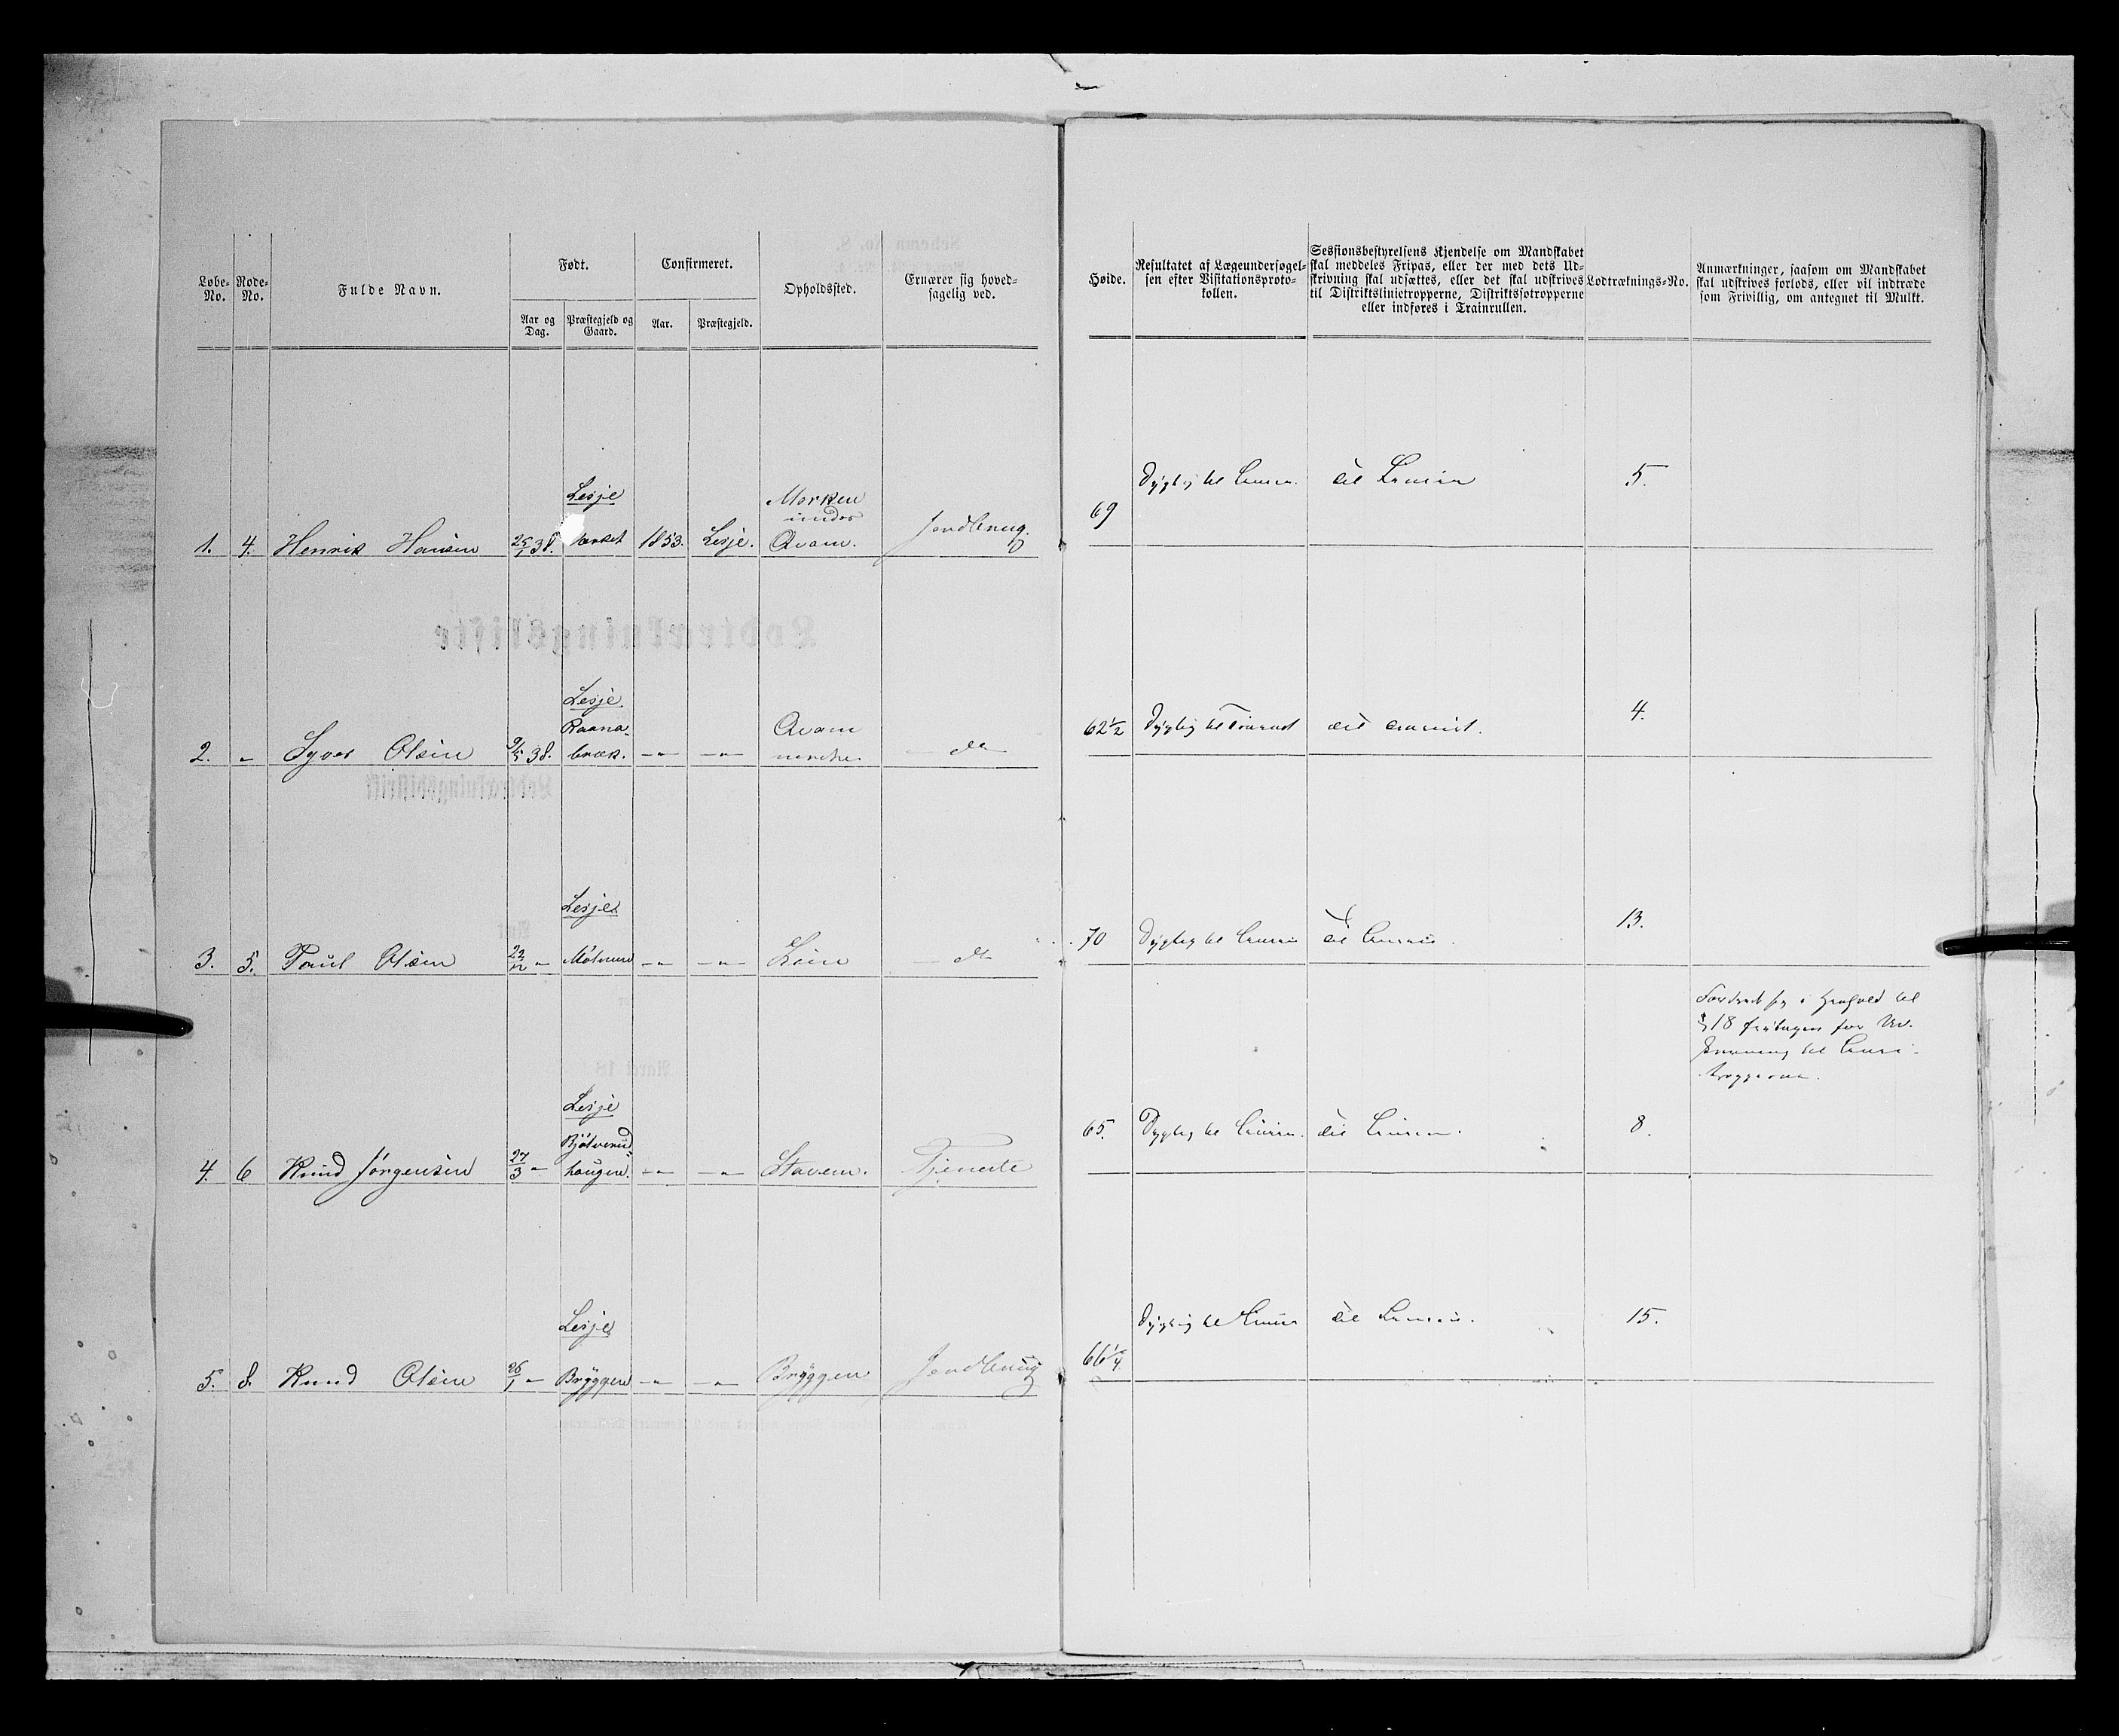 Løbe-No.
Rode-No.
Fulde Navn.
Født.
Aar og Dag.
Præstegjeld og Gaard.
Confirmeret.
Aar.
Præstegjeld.
Opholdssted.
Ernærer sig hoved-
sagelig ved.
Høide.
Resultatet af Lægeundersøgel-
sen efter Visitationsproto-
kollen.
Sessionsbestyrelsens Kjendelse om Mandskabet
skal meddeles Fripas, eller der med dets Ud-
skrivning skal udsættes, eller det skal udskrives
til Distriktslinietropperne, Distriktssøtropperne
eller indføres i Trainrullen.
Lodtræknings-No.
Anmærkninger, saasom om Mandskabet
skal udskrives forlods, eller vil indtræde
som Frivillig, om antegnet til Mulkt.
Lesje
Morken
under
1. 4. Henrik Hansen 25/1 38. 1853. Lesje. Qvam. Jordbrug.
69 Dygtig til Linien. til Linien 5.
Lesje.
Raana-
Qvam
2. " Syver Olsen 9/5 38. bræk. -"- -"- nordre. do
62½ Dygtig til Trainet til Trainet. 4.
Lesje.
3. 5. Paul Olsen 22/12 " -"- -"- Lein do
70 Dygtig til Linien til Linien. 13.
Lesje
Bjølverud-
4. 6 Knud Jørgensen 27/3 " haugen. -"- -"- Stavem. Tjeneste
§ 18 fritagen for
til Linie-
tropperne.
65. Dygtig til Linien. til Linien. 8.
Lesje
5. 8. Knud Olsen 26/1 " Bryggen -"- -"- Bryggen Jordbrug
66¼ Dygtig til Linien til Linien. 15.